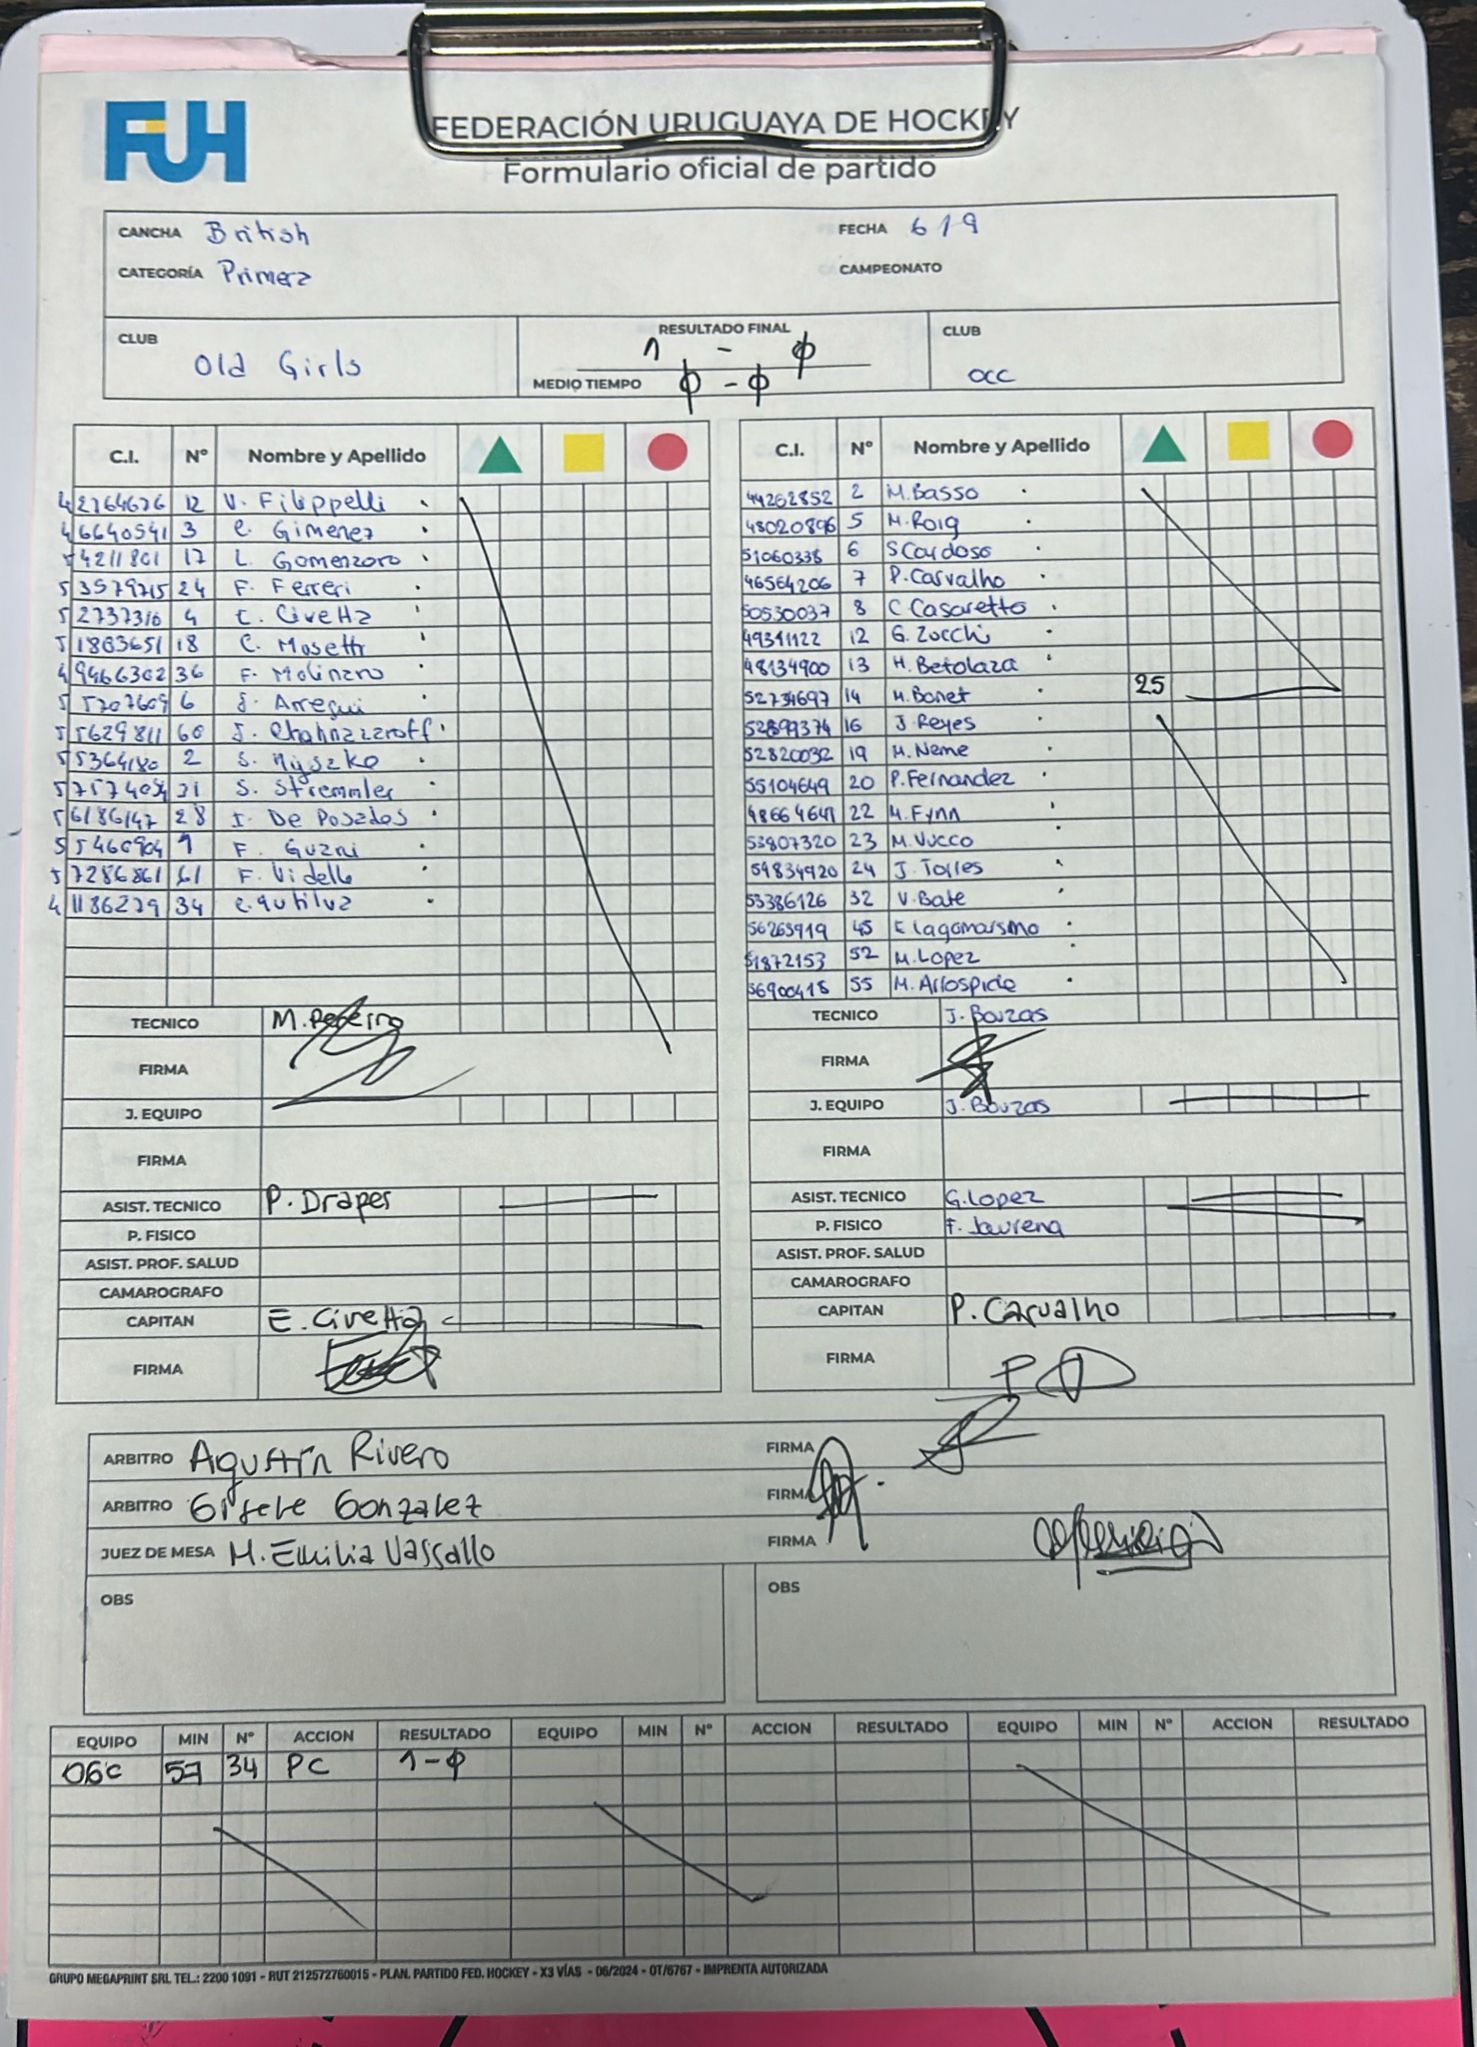 FUH
FEDERACIÓN URUGUAYA DE HOCKEY
Formulario oficial de partido
CANCHA British FECHA 6/9
CATEGORÍA Primera CAMPEONATO
CLUB Old Girls RESULTADO FINAL 1 - 0 CLUB OCC
MEDIO TIEMPO 0 - 0
C.I. Nº Nombre y Apellido
42764676 12 V. Filippelli
46640541 3 C. Gimenez
54211801 17 L. Gomenzoro
53579715 24 F. Ferreri
52737310 4 E. Civetta
51883651 18 C. Mosetti
49466302 36 F. Molinaro
55707609 6 J. Arregui
55629811 60 J. Chahnazaroff
55364180 2 S. Nyszko
57574054 21 S. Stremmler
56186147 28 I. De Posadas
55460904 1 F. Guani
57286861 61 F. Vidello
41186279 34
TECNICO M. Pereira
FIRMA
J. EQUIPO
FIRMA
ASIST. TECNICO P. Draper
P. FISICO
ASIST. PROF. SALUD
CAMAROGRAFO
CAPITAN E. Civetta
FIRMA
C.I. Nº Nombre y Apellido
44262852 2 M. Basso
48020896 5 M. Roig
51060338 6 S Cardoso
46564206 7 P. Carvalho
50530037 8 C Casaretto
49341122 12 G. Zocchi
48134900 13 M. Betolaza
52734697 14 M. Bonet 25
52899374 16 J. Reyes
52820032 19 M. Neme
55104649 20 P. Fernandez
48664641 22 M. Fynn
53807320 23 M. Vucco
54834920 24 J. Torres
53386126 32 V. Bate
56263919 45 E Lagomarsino
51872153 52 M. Lopez
56900418 55 M. Arrospide
TECNICO J. Bouzas
FIRMA
J. EQUIPO J. Bouzas
FIRMA
ASIST. TECNICO G. Lopez
P. FISICO F. Jaurena
ASIST. PROF. SALUD
CAMAROGRAFO
CAPITAN P. Carvalho
FIRMA
ARBITRO Agustín Rivero FIRMA
ARBITRO Gisele Gonzalez FIRMA
JUEZ DE MESA M. Emilia Vassallo FIRMA
OBS OBS
EQUIPO MIN Nº ACCION RESULTADO EQUIPO MIN Nº ACCION RESULTADO EQUIPO MIN Nº ACCION RESULTADO
OGC 57 34 PC 1-0
GRUPO MEGAPRINT SRL TEL.: 2200 1091 - RUT 212572760015 - PLAN. PARTIDO FED. HOCKEY - X3 VÍAS - 06/2024 - OT/6767 - IMPRENTA AUTORIZADA